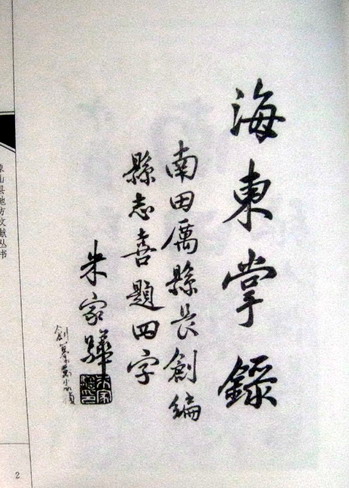 海東掌錄
南田厲縣長創編
縣志喜題四字
朱家驊
象山县地方文献丛书
2